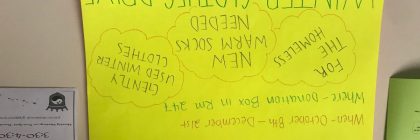 WINTER CLOTHES DRIVE
FOR
THE
HOMELESS
NEW
WARM SOCKS
NEEDED
GENTLY
USED WINTER
CLOTHES
Where - Donation Box in Rm 247
When - October 8th - December 21st
330-430